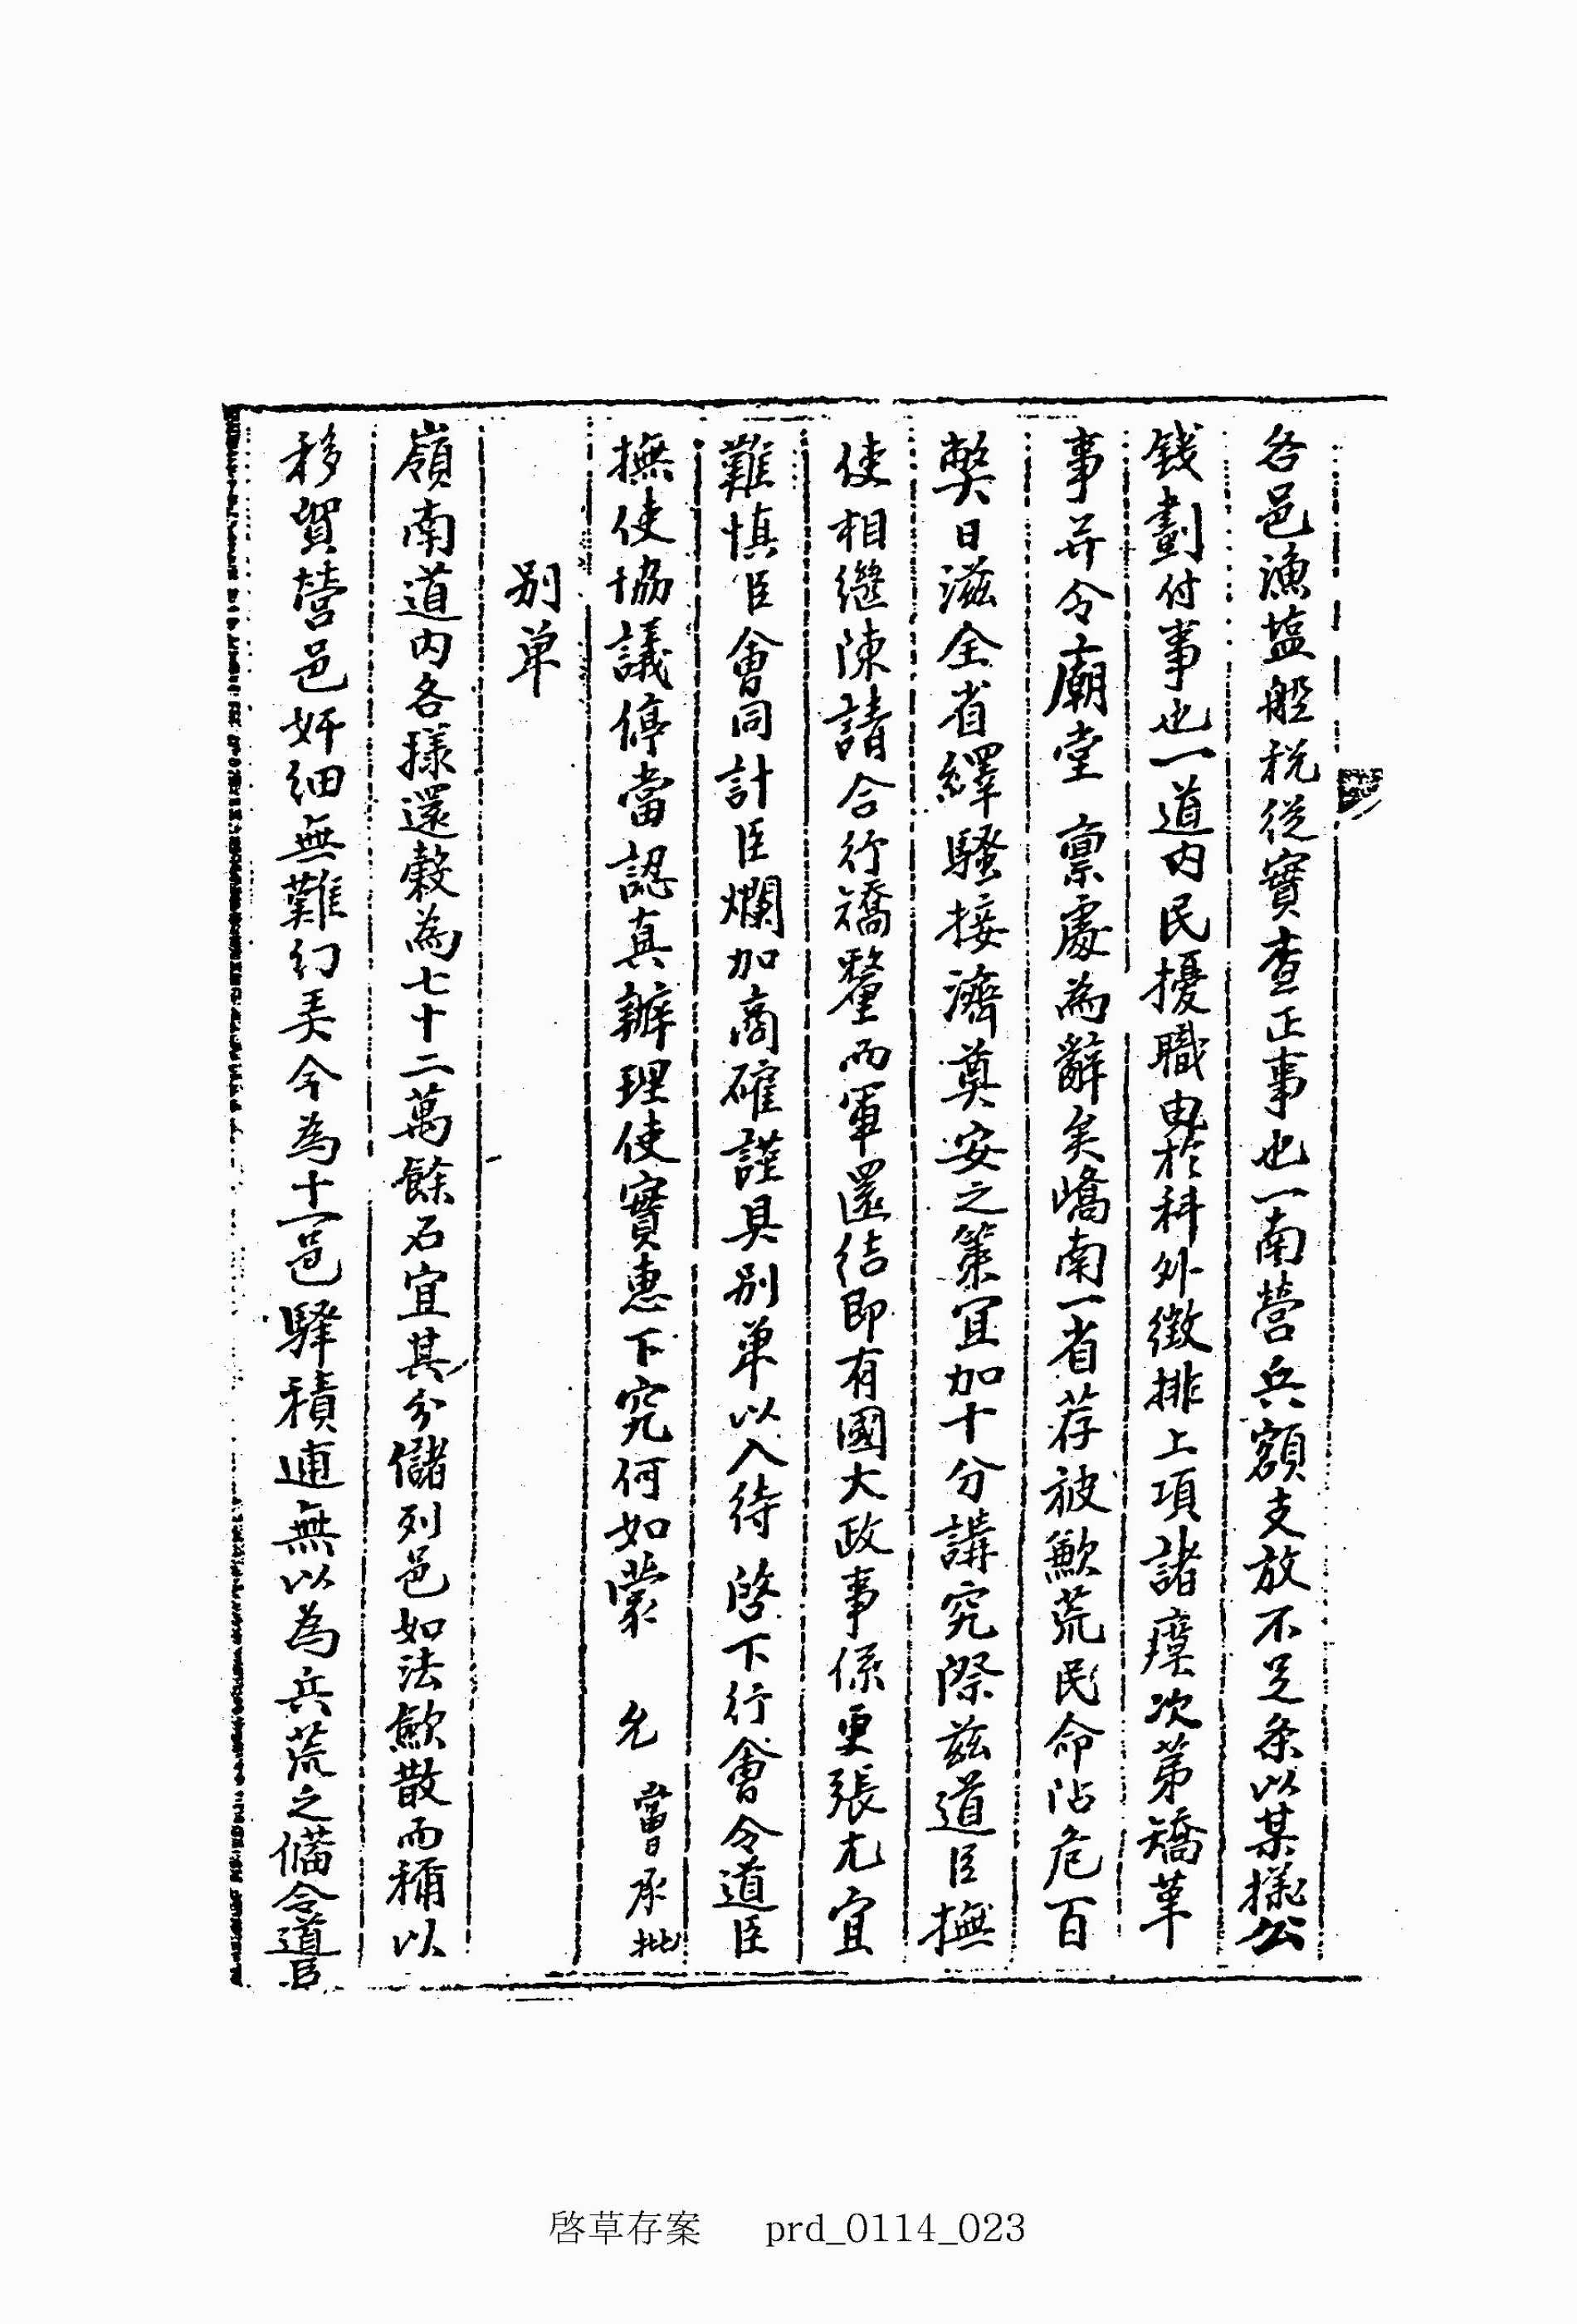 各邑漁塩船稅從實査正事也一南營兵額支放不足条以某樣公
錢劃付事也一道内民擾職由於科外徵排上項諸瘼次第矯革
事并令廟堂 稟處為辭矣嶠南一省荐被歉荒民命阽危百
弊日滋全省繹騷接濟奠安之策宜加十分講究際玆道臣撫
使相繼陳請合行矯釐而軍還結即有國大政事係更張尤宜
難愼臣會同計臣爛加商確謹具別單以入待 啓下行會令道臣
撫使協議停當認真辦理使實惠下究何如蒙 允 當承批
別単
嶺南道内各樣還穀為七十二萬餘石宜其分儲列邑如法斂散而稱以
移貿營邑奸細無難幻弄今為十一邑驛積逋無以為兵荒之備令道臣
啓草存案 prd_0114_023